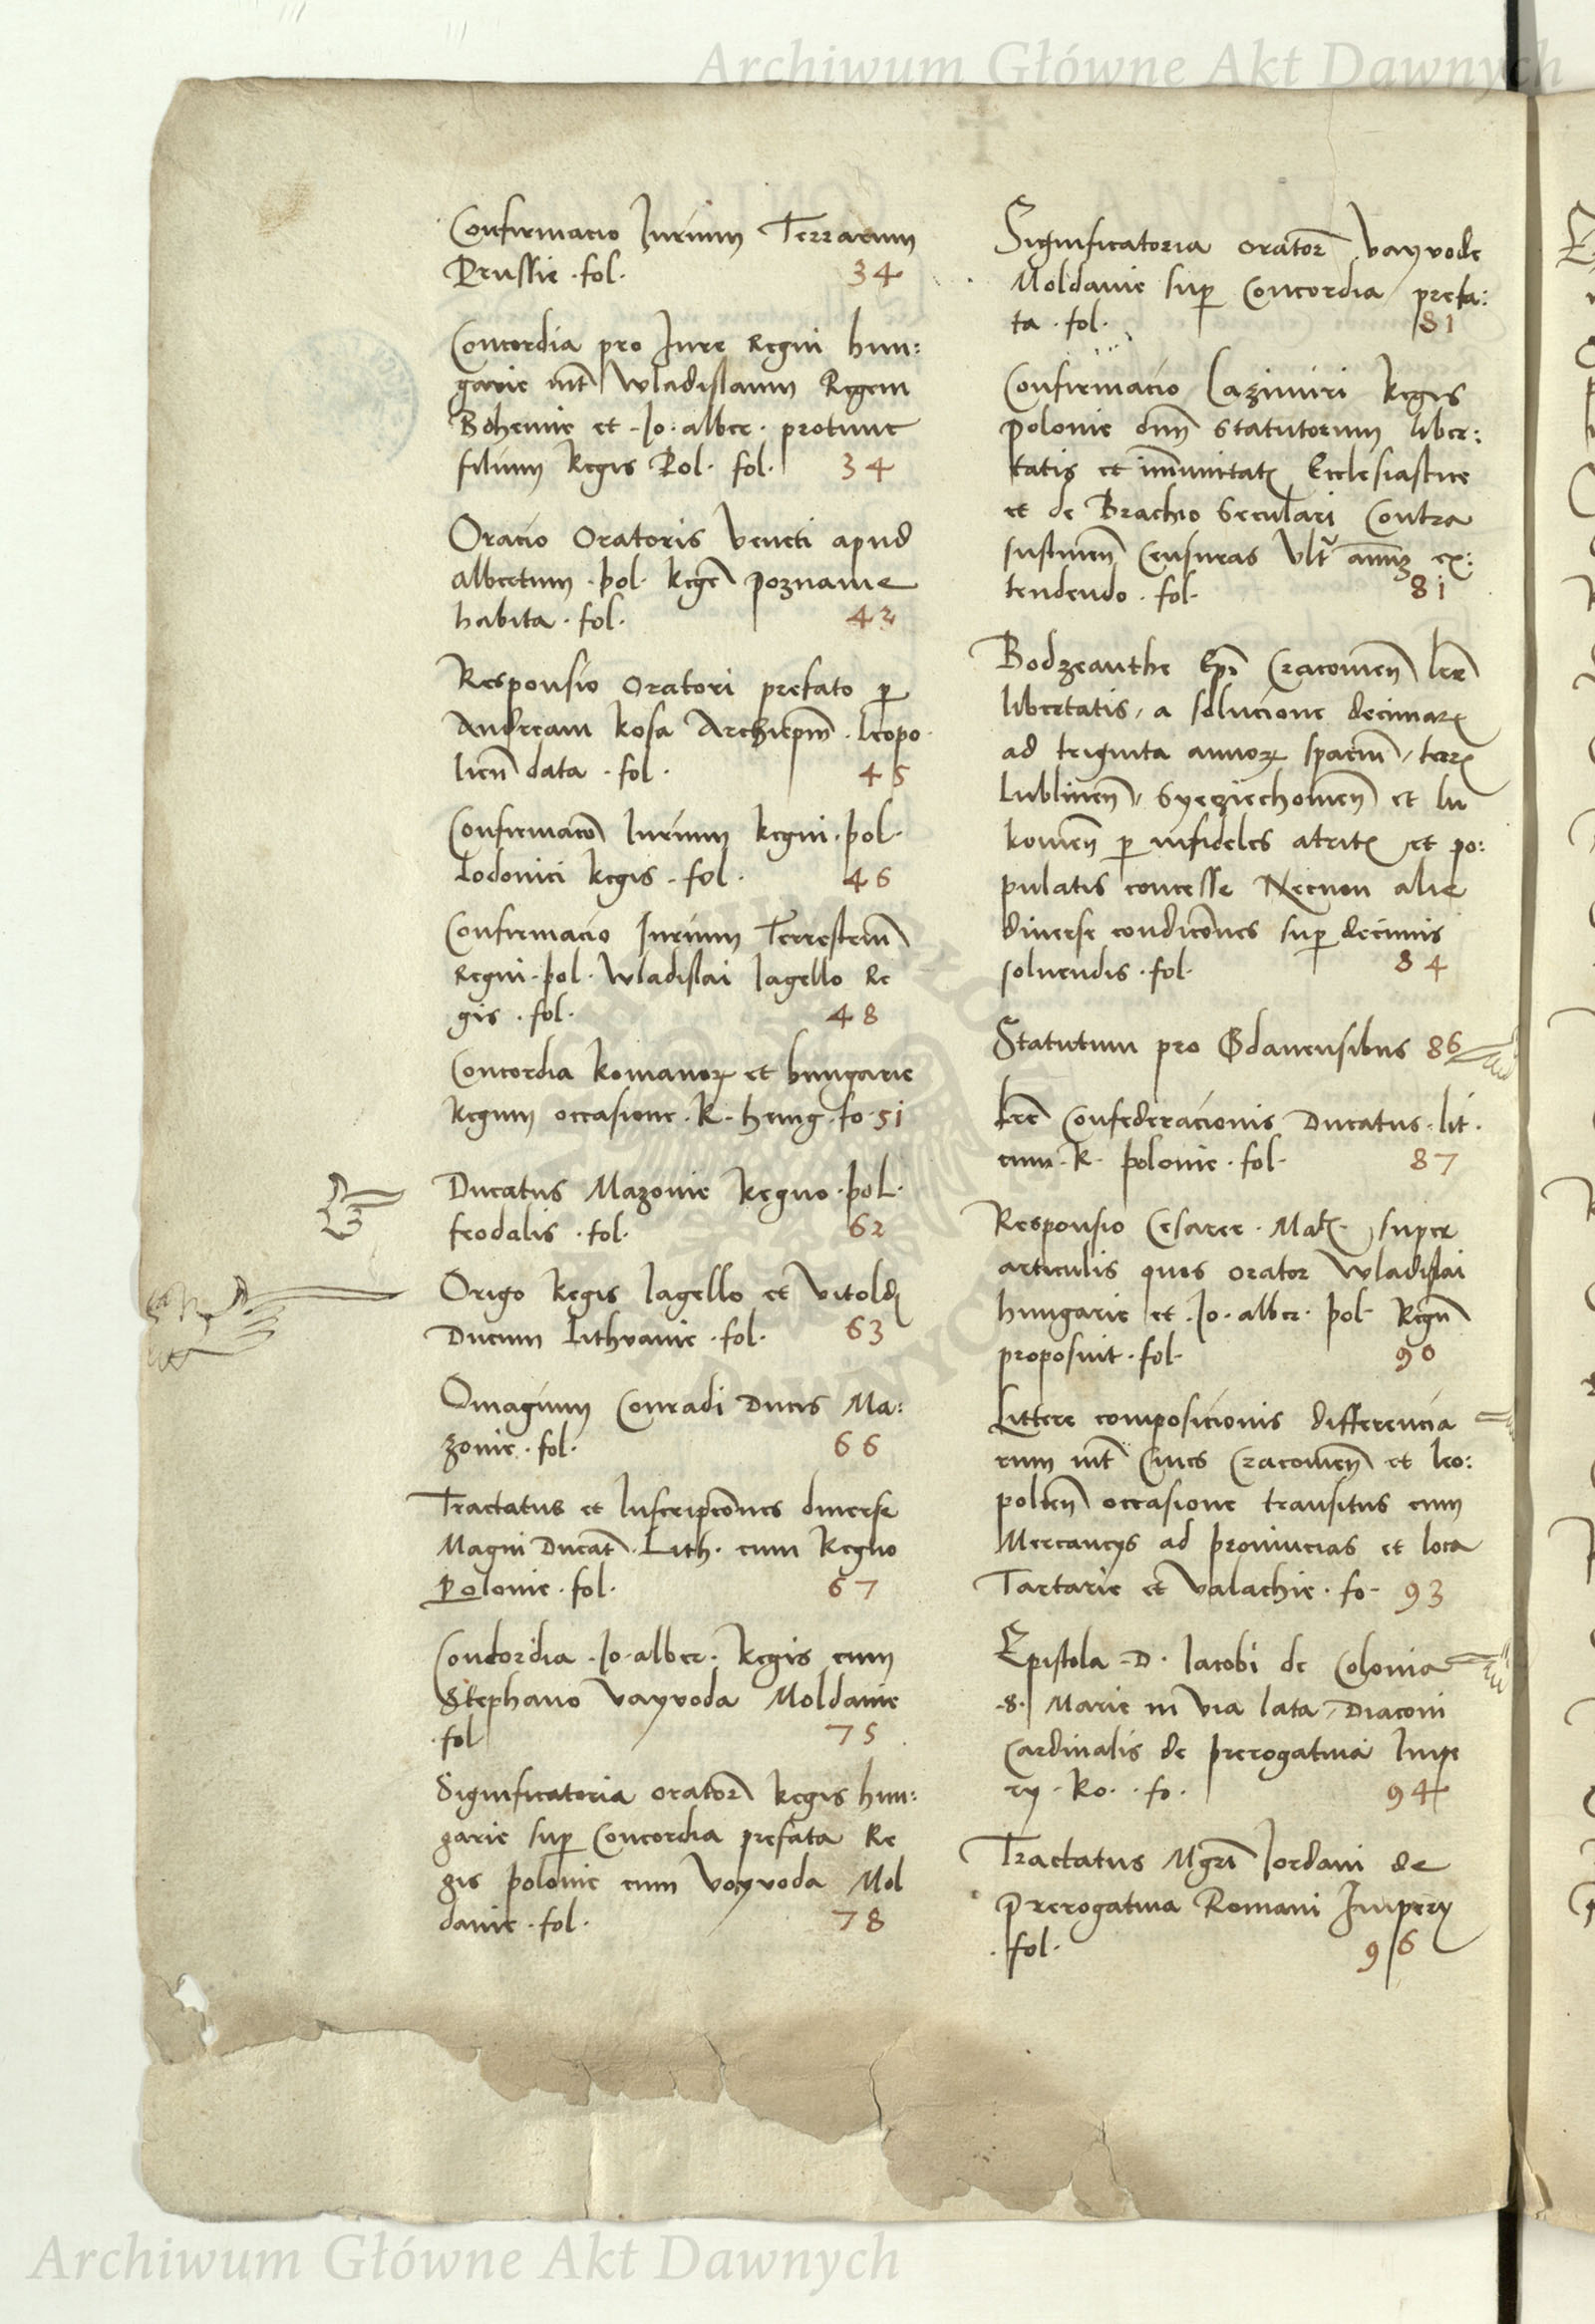 Archiwum Główne Akt Dawnych
Confirmacio Iurium Terrarum
Prussie . fol. 34
Concordia pro Iure Regni hun:
garie int̄ Wladislaum Regem
Bohemie et . Jo: alber . protunc
filium Regis Pol. fol. 34
Oracio Oratoris Veneti apud
albertum . pol. Regē poznanie
habita . fol. 43
Responsio Oratori prefato p̱
Andream Rosa Archiepm̄ . leopo
lien̄ data . fol. 45
Confirmacō Iurium Regni . pol.
Lodovici Regis . fol. 46
Confirmacio Iurium Terrestriū
Regni . pol. Wladislai Iagello Re
gis . fol. 48
Concordia Romanoꝝ et hungarie
Regum occasione . R . hung . fo . 51
Ducatus Mazovie Regno . pol.
feodalis . fol. 62
Origo Regis Iagello et Vitoldi
Ducum Lithvanie . fol. 63
Omagium Conradi Ducis Ma:
zovie . fol. 66
Tractatus et Inscripcōnes diverse
Magni Ducat̄ . Lith. cum Regno
Polonie . fol. 67
Concordia . Jo . alber . Regis cum
Stephano Vayvoda Moldavie
. fol 75
Significatoria orator̄ Regis hun:
garie sup̱ Concordia prefata Re
gis polonie cum Voyvoda Mol
davie . fol. 78
Significatoria orator̄ Vayvode
Moldavie sup̱ Concordia prefa:
ta . fol. 81
Confirmacio Cazimiri Regis
polonie dn̄i Statutorum liber:
tatis et im̄unitatꝭ Ecclesiastice
et de Brachio Seculari Contra
sustinen̄ Censuras Ultᵃ annuꝫ ex:
tendendo . fol. 81
Bodzeanthe Ep̄i Cracovien̄ lrē
libertatis, a solucione decimaꝝ
ad triginta annoꝝ spaciū, terrꝝ
Lublinen̄, Syeciechovien̄ et Lu
kovien̄ p̱ infideles atritꝭ et po:
pulatis concesse Necnon alie
diverse condicōnes sup̱ decimis
solvendis . fol. 84
Statutum pro Gdanensibus 86
Lrē Confederacionis Ducatus . lit.
cum . R . polonie . fol. 87
Responsio Cesaree . Matꝭ . super
articulis quos orator Wladislai
hungarie et . Jo . alber . pol. Regū
proposuit . fol. 90
Littere composicionis differencia
rum int̄ Cives Cracovien̄ et leo:
polien̄ occasione transitus cum
Mercancijs ad provincias et loca
Tartarie et Valachie . fo . 93
Epistola . D . Iacobi de Colonia
. S . Marie in Via lata, Diaconi
Cardinalis de prerogativa Impe
rij . Ro . . fo . 94
Tractatus Mgr̄i Iordani de
Prerogativa Romani Imperij
. fol. 96
Archiwum Główne Akt Dawnych